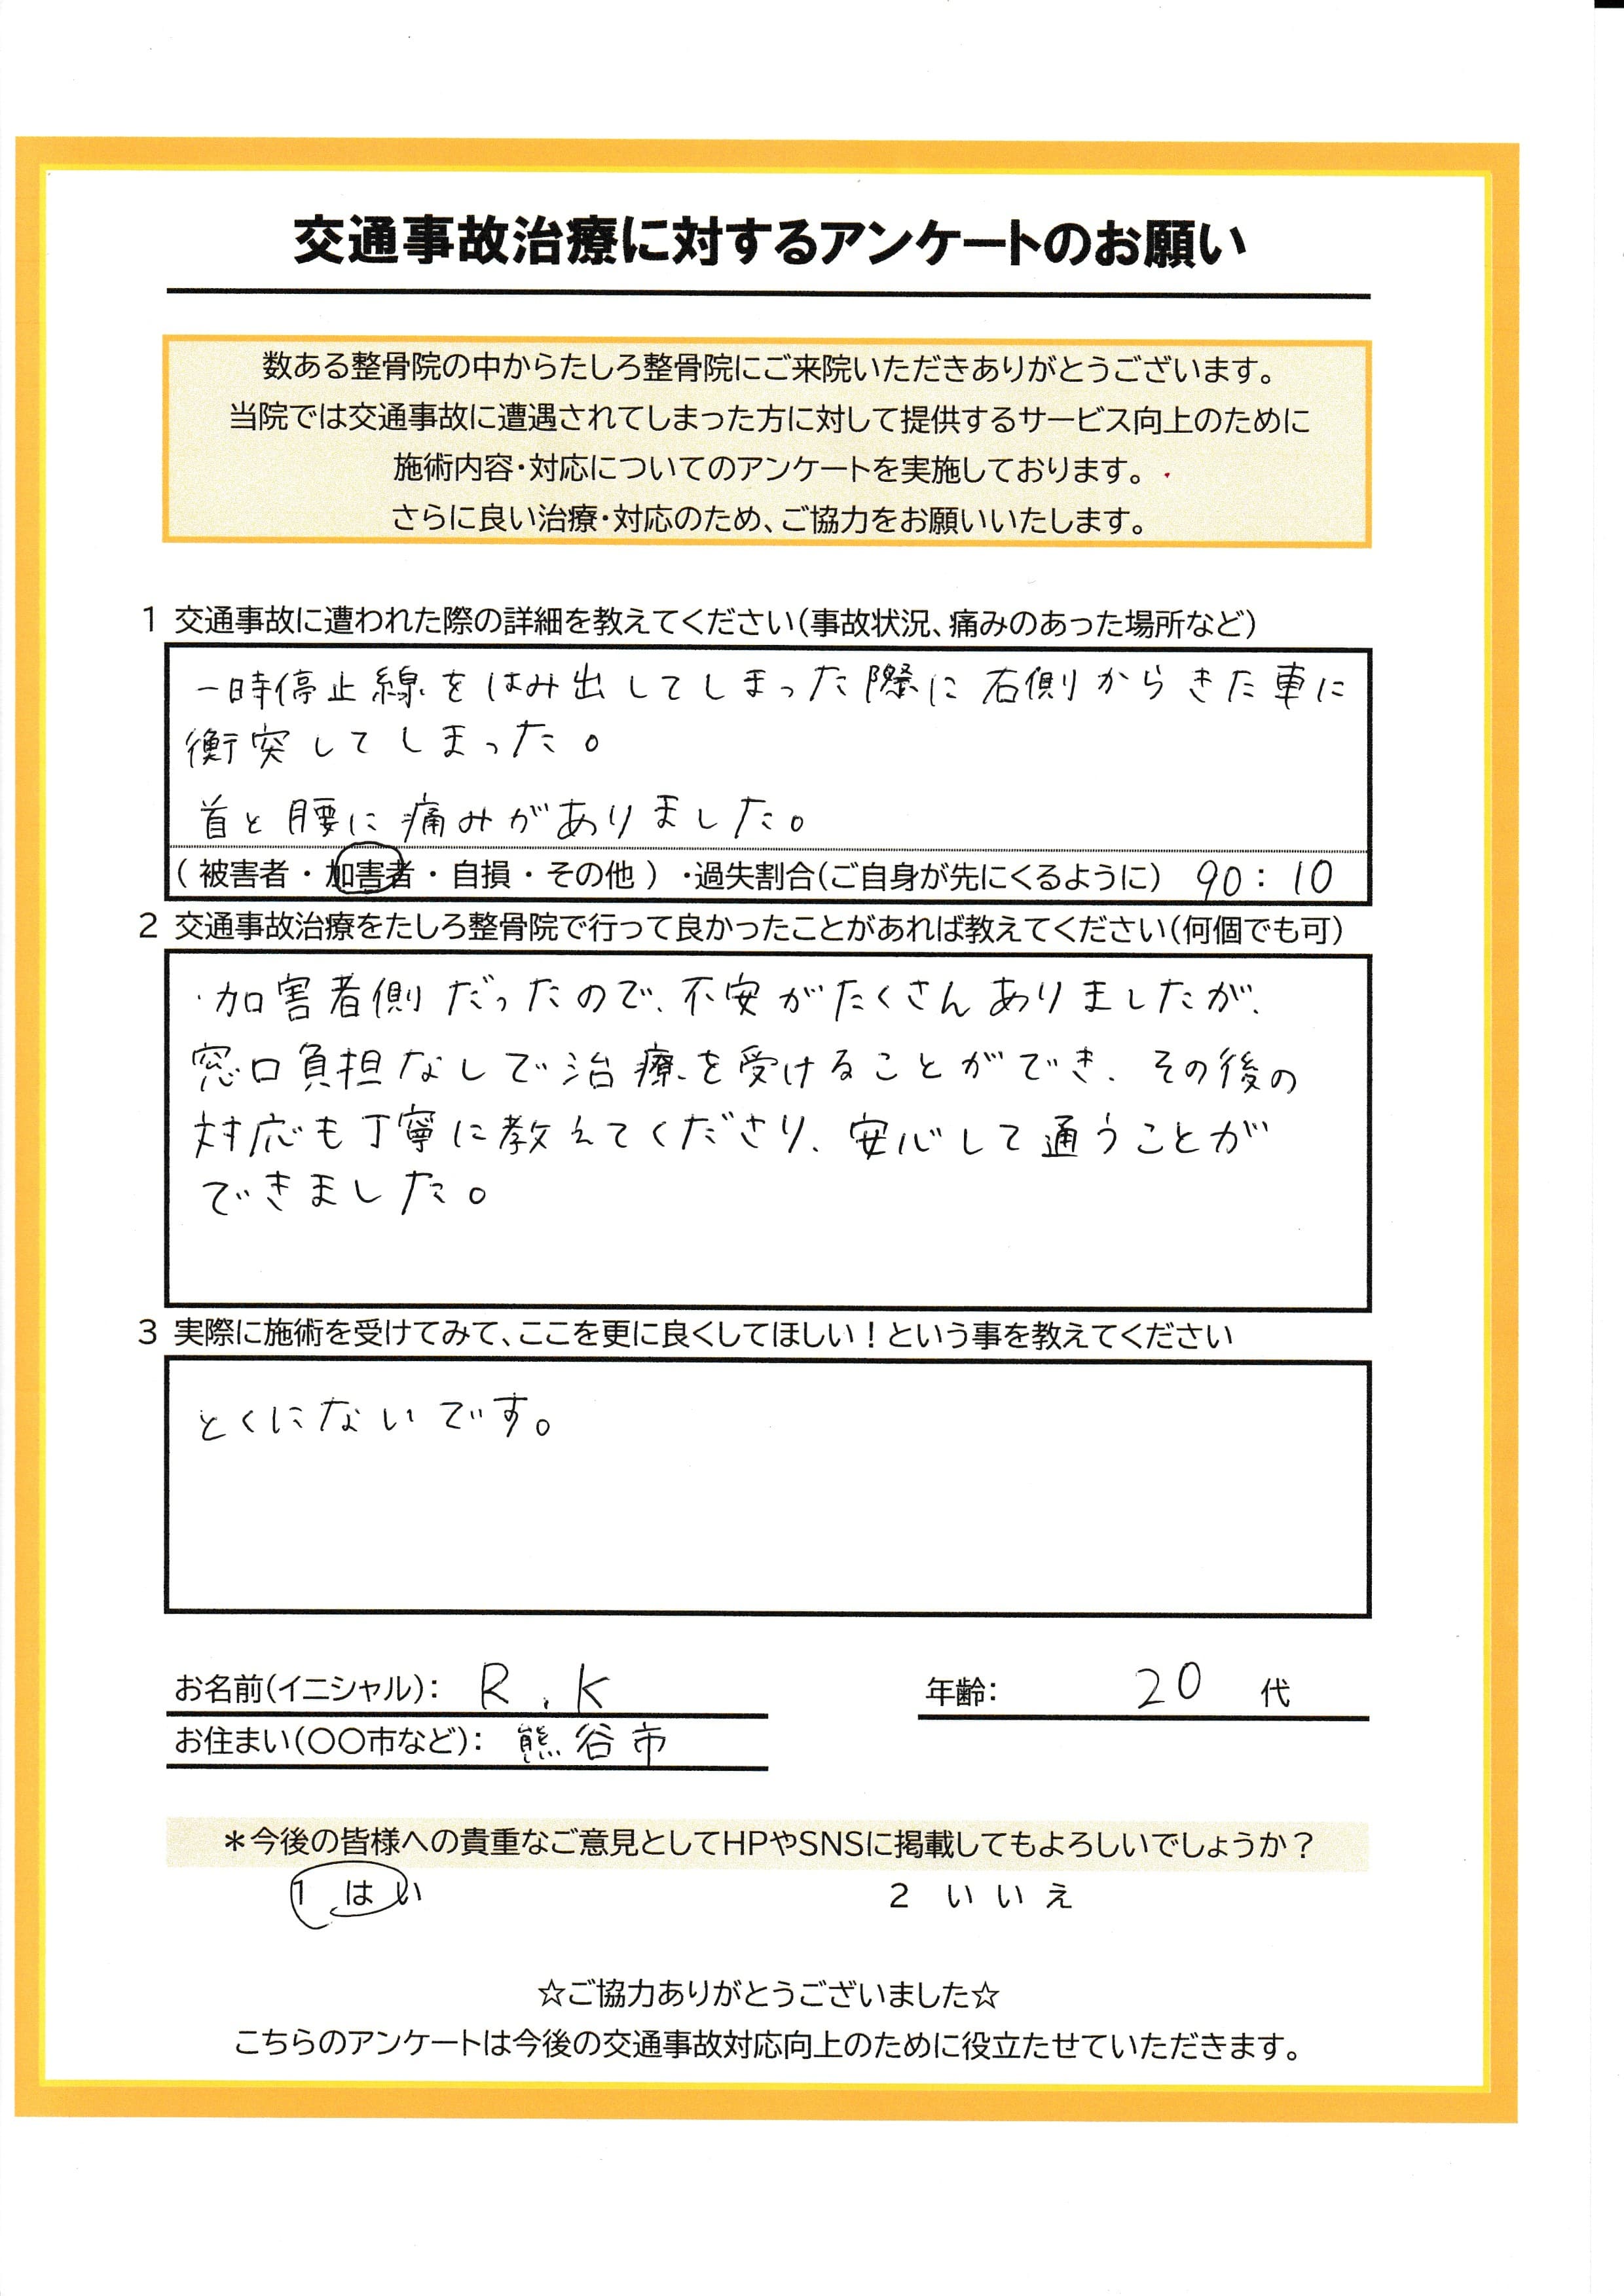 交通事故治療に対するアンケートのお願い
数ある整骨院の中からたしろ整骨院にご来院いただきありがとうございます。
当院では交通事故に遭遇されてしまった方に対して提供するサービス向上のために
施術内容・対応についてのアンケートを実施しております。
さらに良い治療・対応のため、ご協力をお願いいたします。
1 交通事故に遭われた際の詳細を教えてください（事故状況、痛みのあった場所など）
一時停止線をはみ出してしまった際に右側からきた車に
衝突してしまった。
首と腰に痛みがありました。
（ 被害者 ・ 加害者 ・ 自損 ・ その他 ） ・過失割合（ご自身が先にくるように） 90 : 10
2 交通事故治療をたしろ整骨院で行って良かったことがあれば教えてください（何個でも可）
・加害者側だったので、不安がたくさんありましたが、
窓口負担なしで治療を受けることができ、その後の
対応も丁寧に教えてくださり、安心して通うことが
できました。
3 実際に施術を受けてみて、ここを更に良くしてほしい！という事を教えてください
とくにないです。
お名前（イニシャル）： R.K 年齢： 20 代
お住まい（〇〇市など）： 熊谷市
＊今後の皆様への貴重なご意見としてHPやSNSに掲載してもよろしいでしょうか？
1 はい 2 いいえ
☆ご協力ありがとうございました☆
こちらのアンケートは今後の交通事故対応向上のために役立たせていただきます。